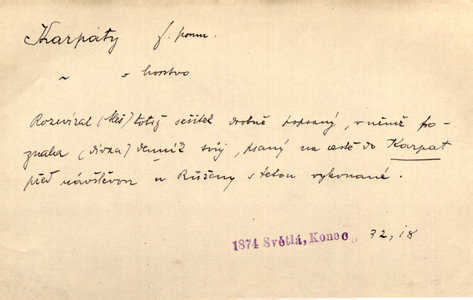 Karpaty f. pomn.
~ horstvo
Rozevíral (Aleš) totiž sešitek drobně popsaný, v němž po-
znala (dívka) denník svůj, psaný na cestě do Karpat
před návštěvou u Růženy s tetou vykonané.
1874 Světlá, Konec 32, 18